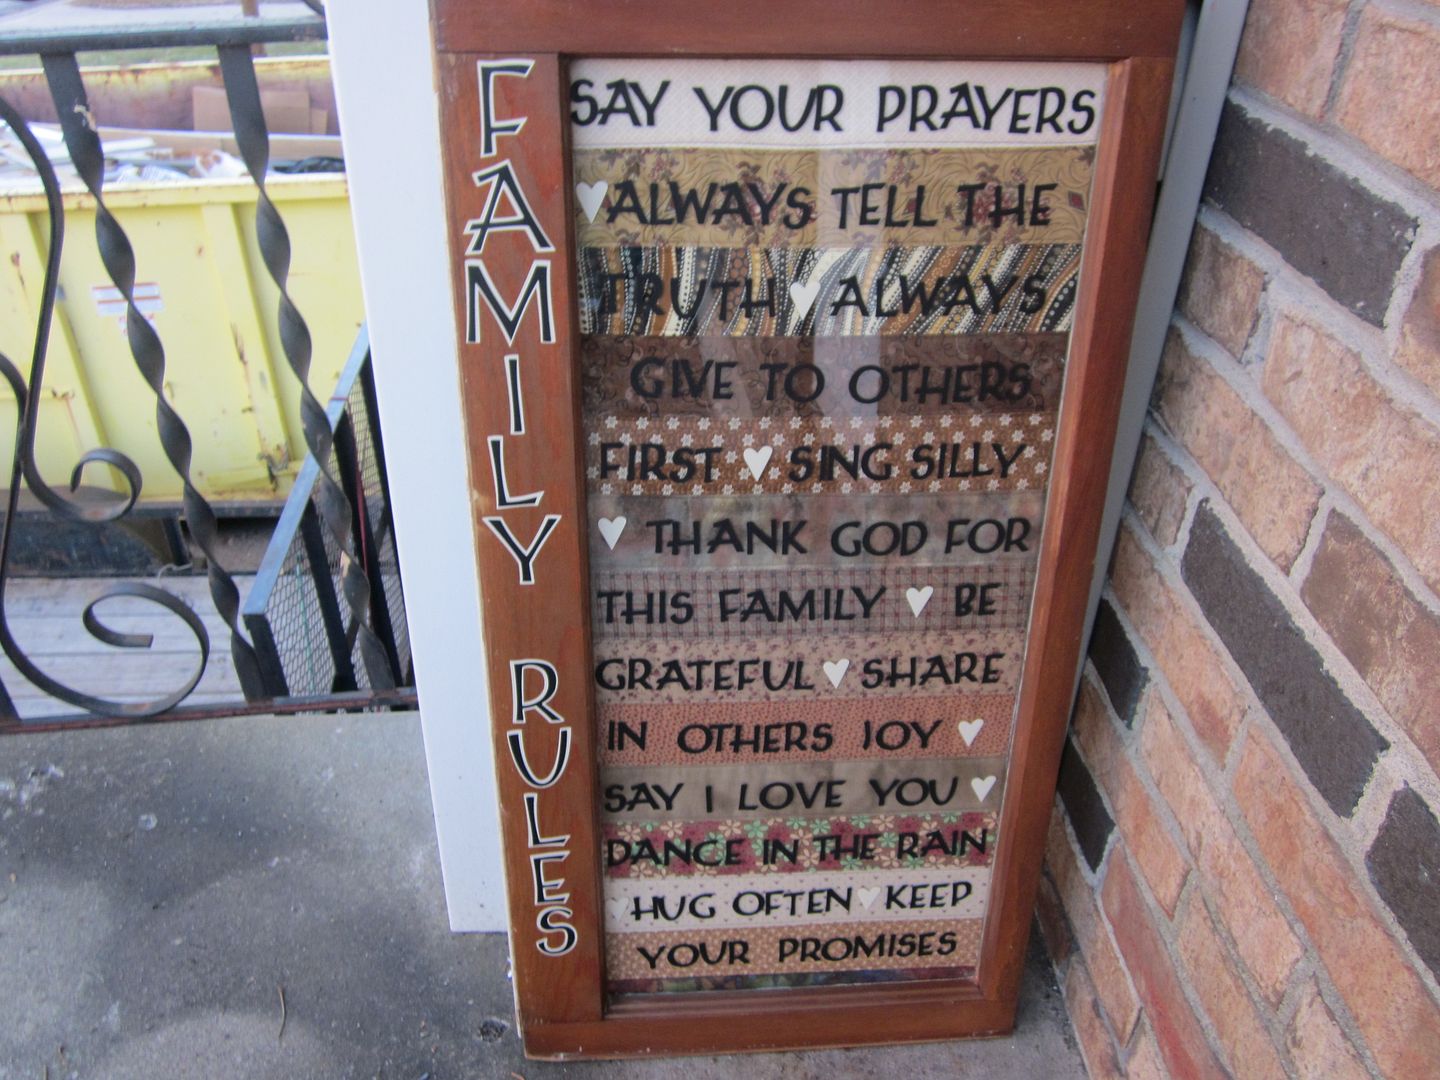 FAMILY RULES
SAY YOUR PRAYERS
ALWAYS TELL THE
TRUTH ALWAYS
GIVE TO OTHERS
FIRST SING SILLY
THANK GOD FOR
THIS FAMILY BE
GRATEFUL SHARE
IN OTHERS JOY
SAY I LOVE YOU
DANCE IN THE RAIN
HUG OFTEN KEEP
YOUR PROMISES